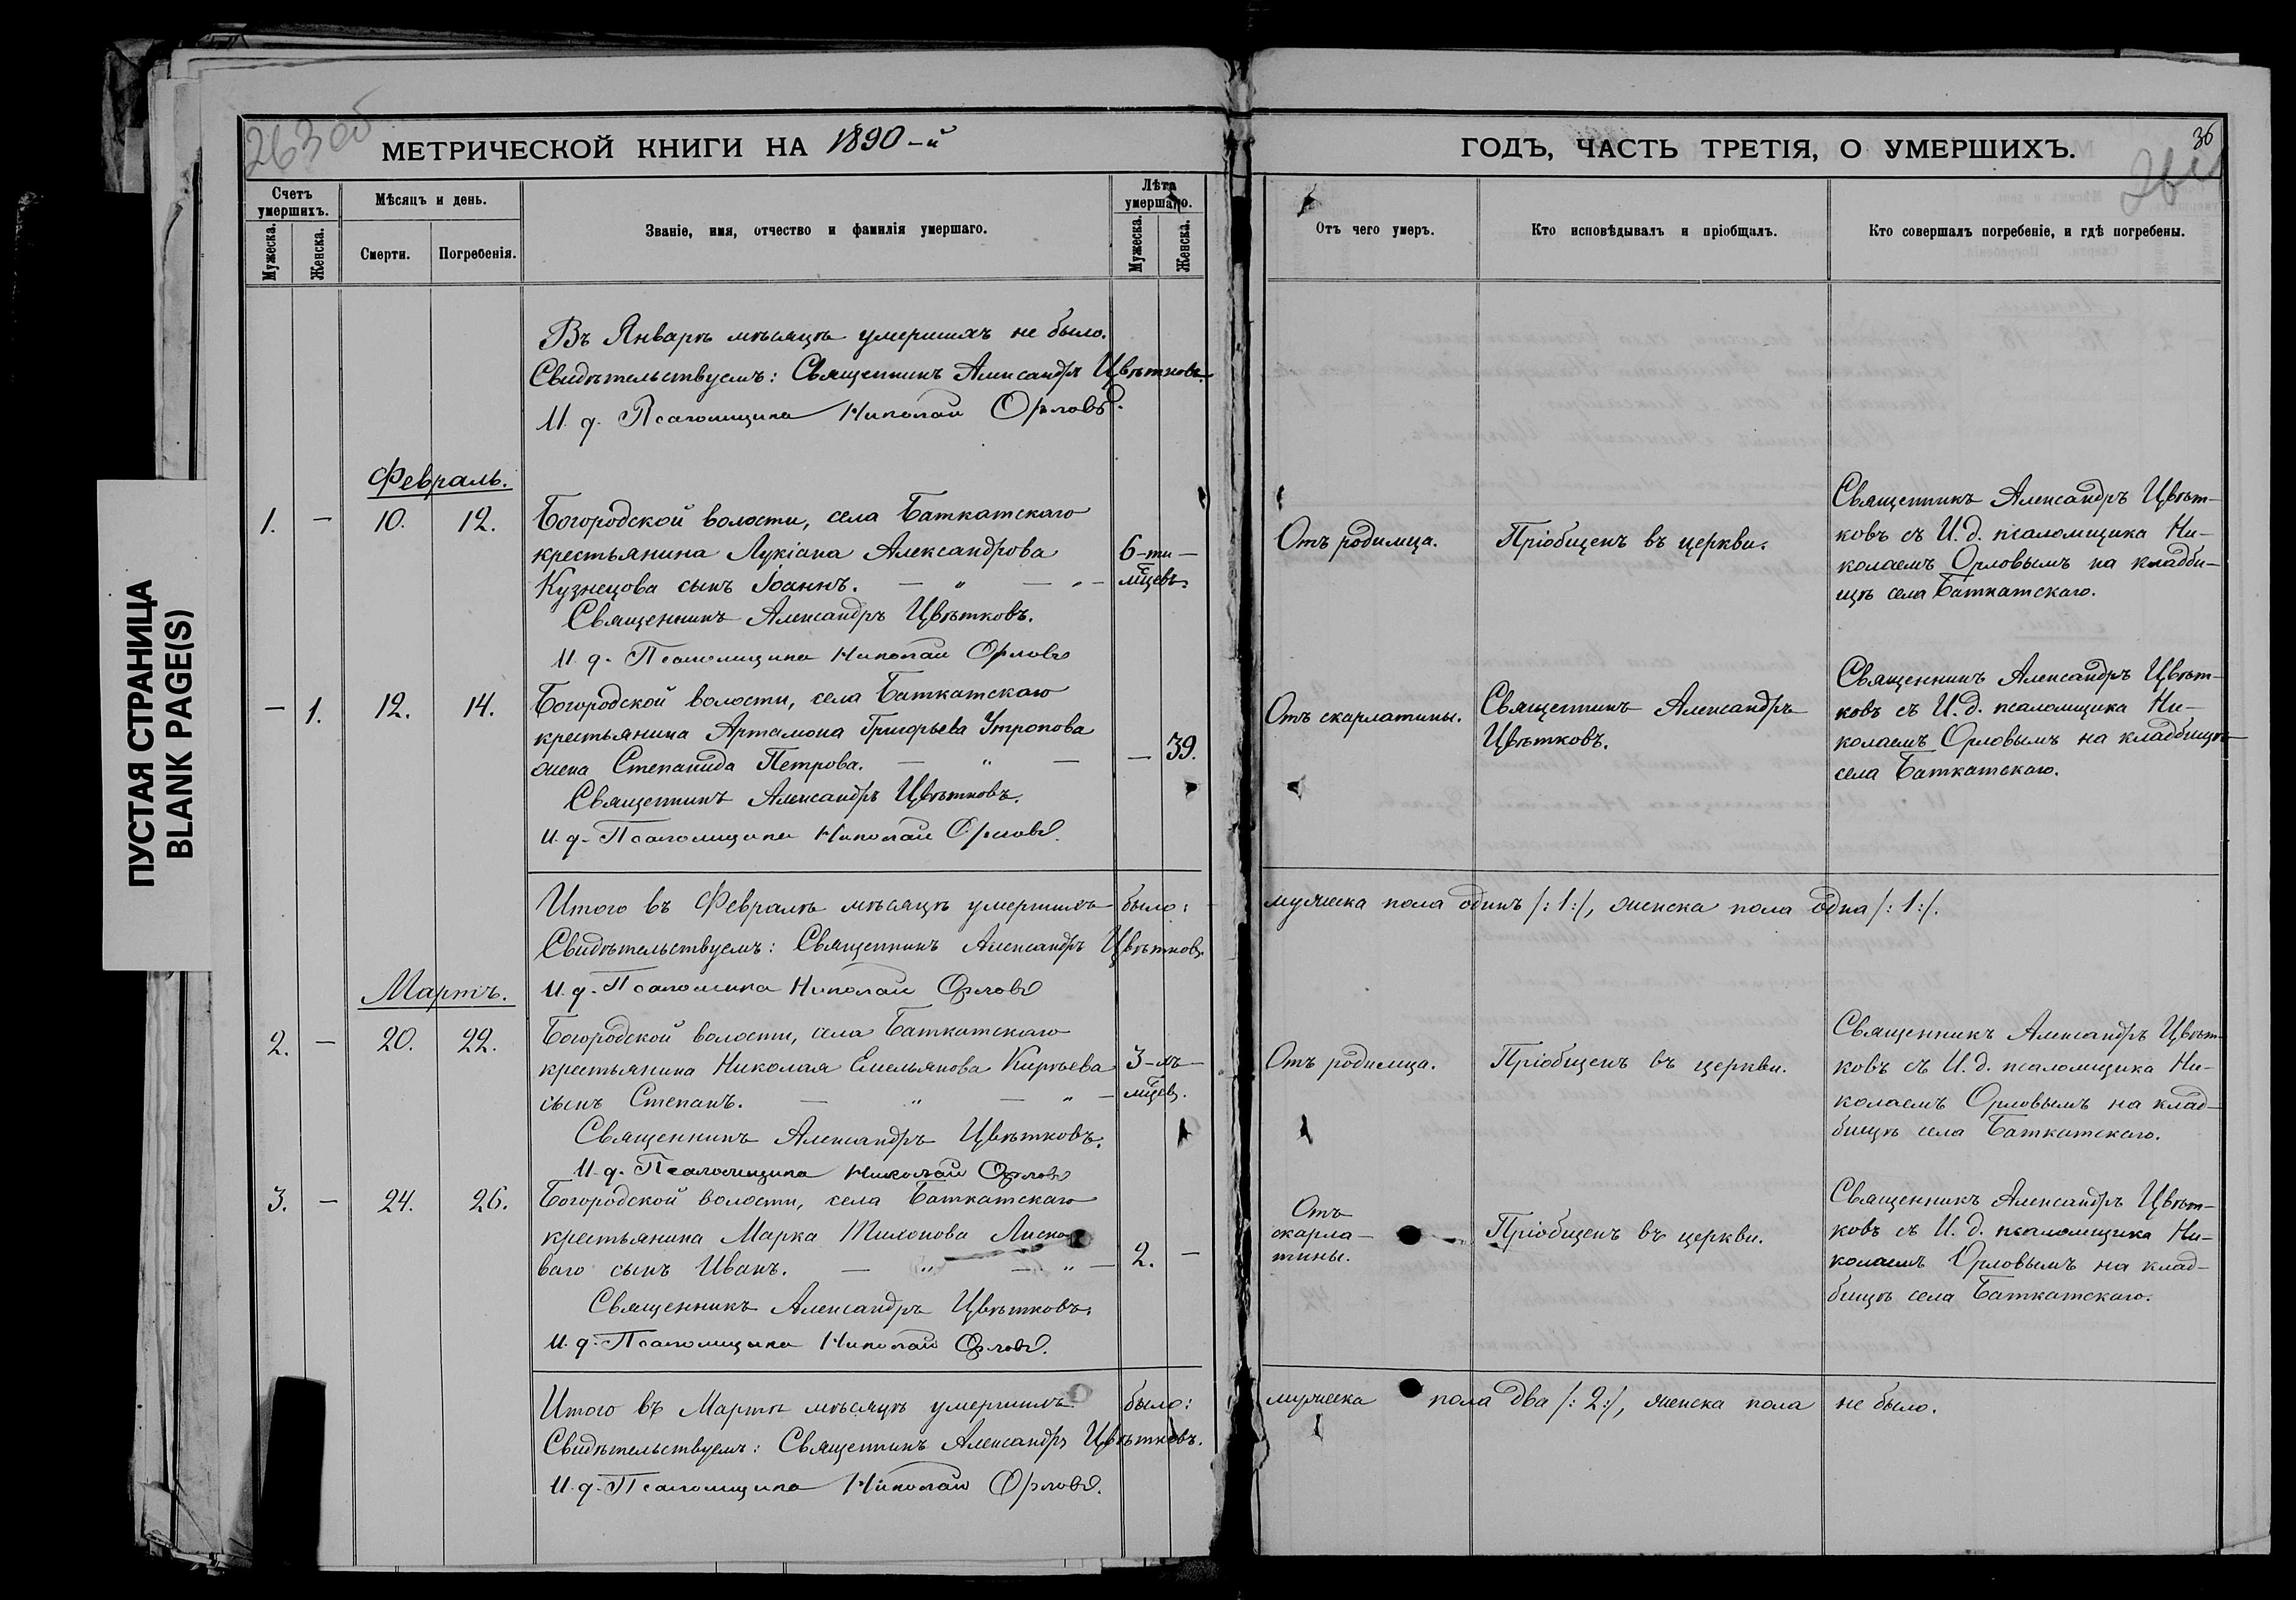 263 об
МЕТРИЧЕСКОЙ КНИГИ НА 1890-й
ГОДЪ, ЧАСТЬ ТРЕТІЯ, О УМЕРШИХЪ.
36
Счетъ умершихъ.
Мужеска.
Женска.
Мѣсяцъ и день.
Смерти.
Погребенія.
Званіе, имя, отчество и фамилія умершаго.
Лѣта умершаго.
Мужеска.
Женска.
Отъ чего умеръ.
Кто исповѣдывалъ и пріобщалъ.
Кто совершалъ погребеніе, и гдѣ погребены.
Въ Январѣ мѣсяцѣ умершихъ не было.
Свидѣтельствуемъ: Священникъ Александръ Цвѣтковъ.
И. д. Псаломщика Николай Орловъ.
Февраль.
1. — 10. 12.
Богородской волости, села Баткатскаго
крестьянина Лукіана Александрова
Кузнецова сынъ Іоаннъ. — " — " —
6-ти —
мцевъ.
Священникъ Александръ Цвѣтковъ.
И. д. Псаломщика Николай Орловъ
Отъ родимца.
Пріобщенъ въ церкви.
Священникъ Александръ Цвѣт-
ковъ съ И. д. псаломщика Ни-
колаемъ Орловымъ на кладби-
щѣ села Баткатскаго.
— 1. 12. 14.
Богородской волости, села Баткатскаго
крестьянина Артамона Григорьева Утропова
жена Степанида Петрова. — " —
— 39.
Священникъ Александръ Цвѣтковъ.
И. д. Псаломщика Николай Орловъ.
Отъ скарлатины.
Священникъ Александръ
Цвѣтковъ.
Священникъ Александръ Цвѣт-
ковъ съ И. д. псаломщика Ни-
колаемъ Орловымъ на кладбищѣ
села Баткатскаго.
Итого въ Февралѣ мѣсяцѣ умершихъ было: мужеска пола одинъ /:1:/, женска пола одна /:1:/.
Свидѣтельствуемъ: Священникъ Александръ Цвѣтковъ.
И. д. Псаломщика Николай Орловъ
Мартъ.
2. — 20. 22.
Богородской волости, села Баткатскаго
крестьянина Николая Емельянова Киреева
сынъ Степанъ. — " — " —
3-хъ —
мцев.
Священникъ Александръ Цвѣтковъ.
И. д. Псаломщика Николай Орловъ
Отъ родимца.
Пріобщенъ въ церкви.
Священникъ Александръ Цвѣт-
ковъ съ И. д. псаломщика Ни-
колаемъ Орловымъ на клад-
бищѣ села Баткатскаго.
3. — 24. 26.
Богородской волости, села Баткатскаго
крестьянина Марка Тихонова
ваго сынъ Иванъ. — " — " —
2. —
Священникъ Александръ Цвѣтковъ.
И. д. Псаломщика Николай Орловъ.
Отъ
скарла-
тины.
Пріобщенъ въ церкви.
Священникъ Александръ Цвѣт-
ковъ съ И. д. псаломщика Ни-
колаемъ Орловымъ на клад-
бищѣ села Баткатскаго.
Итого въ Мартѣ мѣсяцѣ умершихъ было: мужеска пола два /:2:/, женска пола не было.
Свидѣтельствуемъ: Священникъ Александръ Цвѣтковъ.
И. д. Псаломщика Николай Орловъ.
ПУСТАЯ СТРАНИЦА
BLANK PAGE(S)